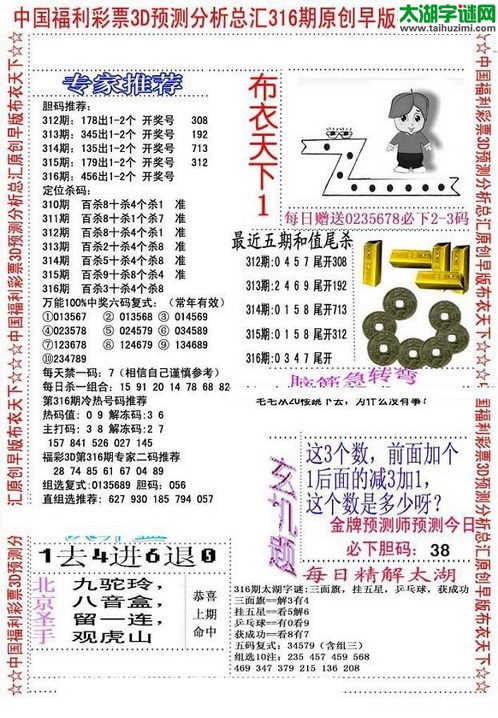 中国福利彩票3D预测分析总汇316期原创早版
太湖字谜网
www.taihuzimi.com
☆☆中国福利彩票3D预测分析总汇原创早版布衣天下☆☆
专家推荐
胆码推荐:
312期: 178出1-2个 开奖号 308
313期: 345出1-2个 开奖号 192
314期: 135出1-2个 开奖号 713
315期: 179出1-2个 开奖号 312
316期: 456出1-2个 开奖号
定位杀码:
310期 百杀8十杀4个杀1 准
311期 百杀8十杀4个杀1 准
312期 百杀6十杀4个杀1 准
313期 百杀8十杀4个杀7 准
314期 百杀8十杀4个杀5 准
315期 百杀9十杀4个杀8 准
316期 百杀3十杀4个杀8
万能100%中奖六码复式: (常年有效)
①013567 ② 013568 ③ 014569
④023578 ⑤ 024579 ⑥ 034589
⑦123678 ⑧ 124679 ⑨ 134689
⑩234789
每天禁一码: 7 (相信自己谨慎参考)
每日杀一组合: 15 91 20 14 78 68 82
第316期冷热号码推荐
热码值: 0 9 解冻码: 3 6
主打码: 3 8 解冻码: 2 7
157 841 526 027 145
福彩3D第316期专家二码推荐
28 74 85 61 67 04 89
组选复式: 0135689 胆码: 056
直组选推荐: 627 930 185 794 057
布衣天下1
每日赠送0235678必下2-3码
最近五期和值尾杀
312期:0 4 5 7 尾开308
313期:2 4 6 9 尾开192
314期:0 1 5 8 尾开713
315期:0 1 5 8 尾开312
316期:0 3 4 7 尾开
脑筋急转弯
毛毛从20楼跳下去，为什么没有事?
玄机题
这3个数，前面加个
1后面的减3加1，
这个数是多少呀?
金牌预测师预测今日
必下胆码: 38
1去4进6退0
北京圣手
九驼玲，
八音盒，
留一连，
观虎山
恭喜
上期
命中
每日精解太湖
316期太湖字谜:三面旗，挂五星，乒乓球，获成功
三面旗==解3有4
挂五星==看5解6
乒乓球==有0看9
获成功==看8有7
五码复式: 34579 (含组三)
组选10注: 235 457 459 568
469 347 379 215 136 208
☆☆中国福利彩票3D预测分析总汇原创早版布衣天下☆☆